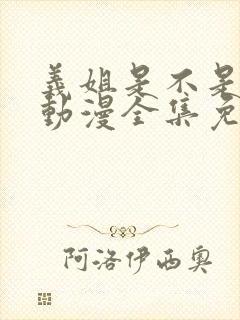 義姐是不是
動漫全集免
阿洛伊西奥